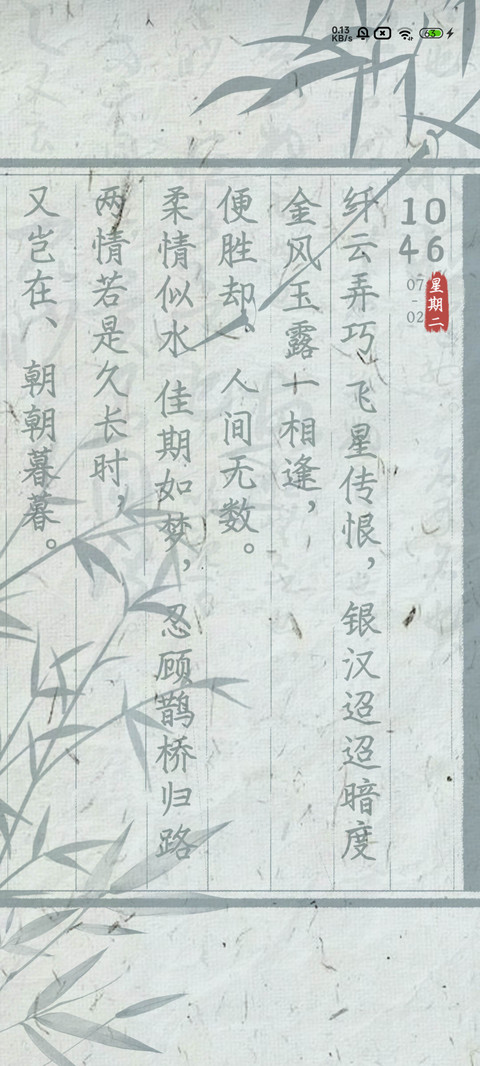 0.13
KB/s
63
10
46
07
-
02
星期二
纤云弄巧 飞星传恨，银汉迢迢暗度
金风玉露一相逢，
便胜却、人间无数。
柔情似水 佳期如梦，忍顾鹊桥归路
两情若是久长时，
又岂在、朝朝暮暮。